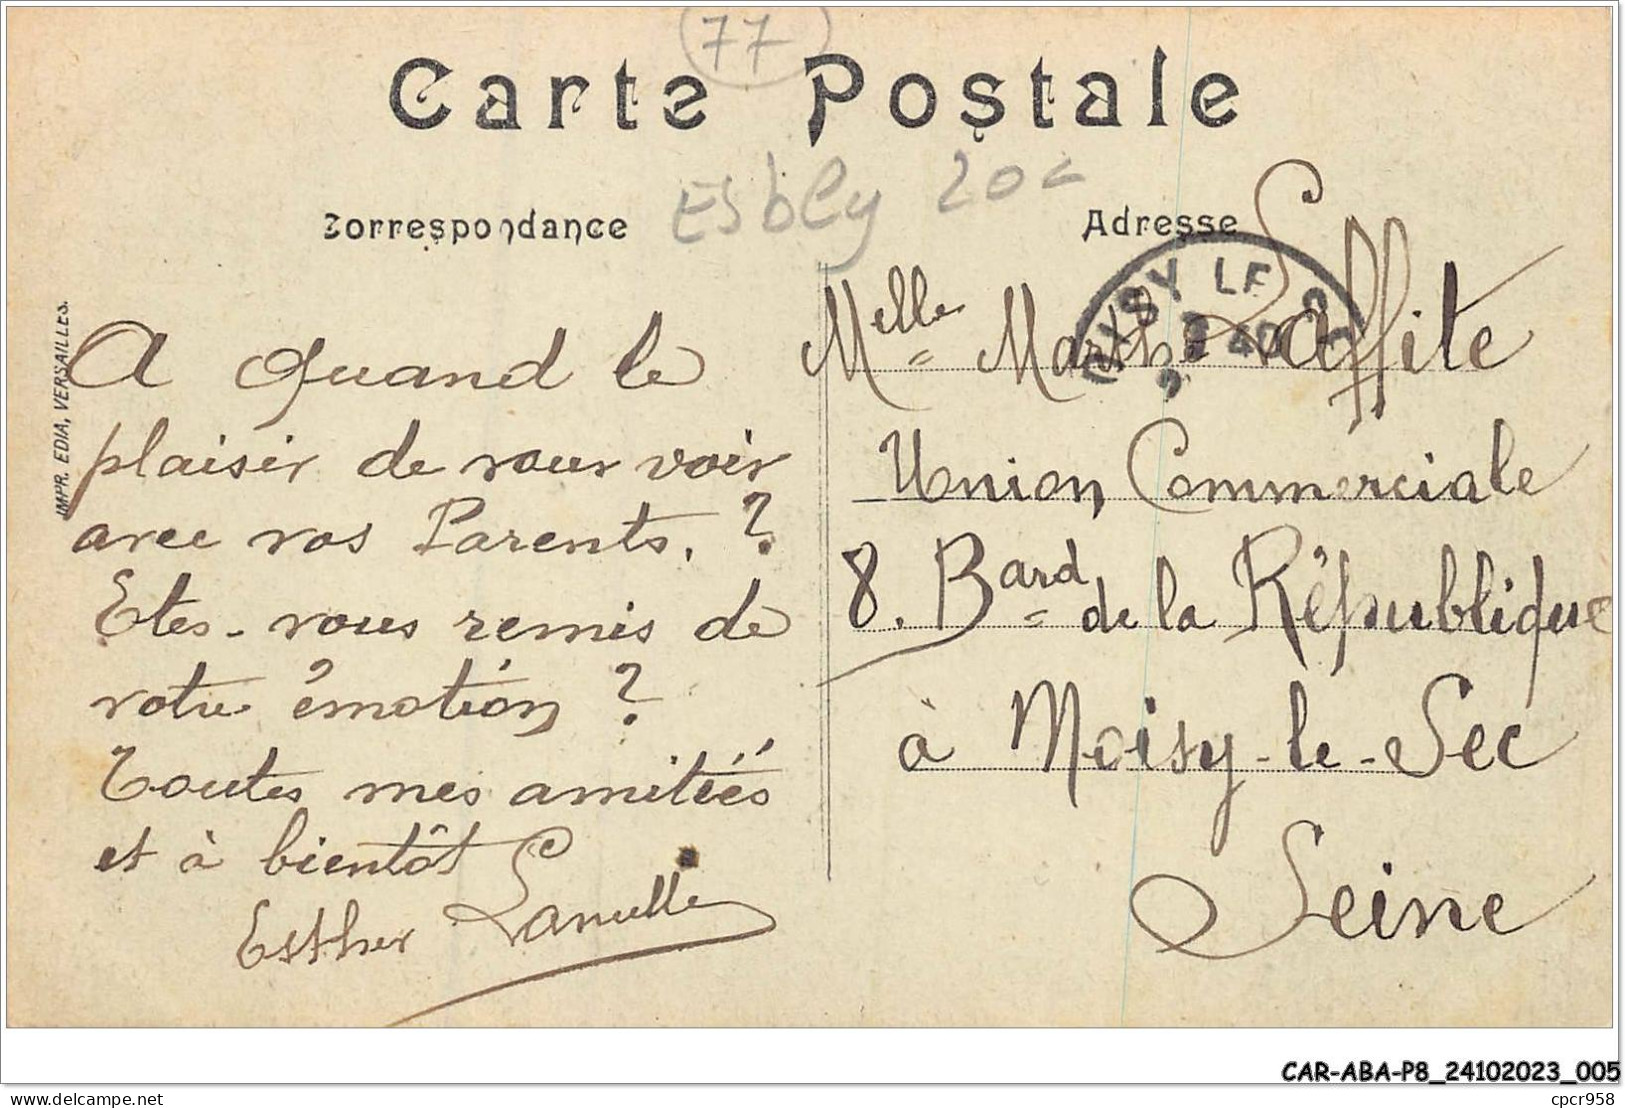 77
Carte Postale
Esbly 20c
Correspondance
Adresse
IMPR. EDIA, VERSAILLES.
A quand le
plaisir de vous voir
avec vos Parents. ?
Etes-vous remis de
votre émotion ?
Toutes mes amitiés
et à bientôt
Esther
NOISY LE SEC
Melle Marthe Laffite
Union Commerciale
8. Bard de la République
à Noisy-le-Sec
Seine
CAR-ABA-P8_24102023_005
delcampe.net
cpcr958